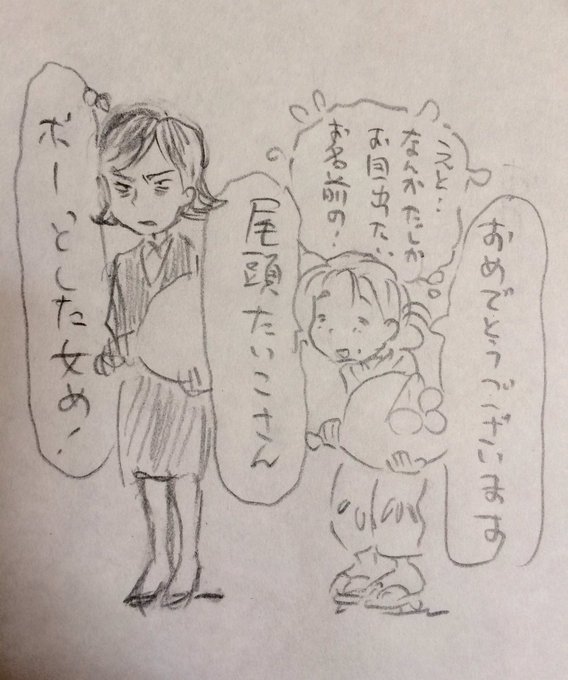 おめでとうございます
えと・・
なんかたしか
お目出たい
お名前の・・
尾頭たいこさん
ボーッとした女め！